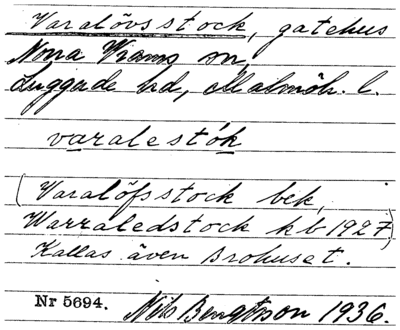 Varalövsstock, gatehus
Norra Vrams sn,
Luggude hd, Malmöh. l.
varalestók
(Varalöfsstock bek,
Warraledstock kb 1927)
Kallas även Brohuset.
Nr 5694. Nils Bengtsson 1936.